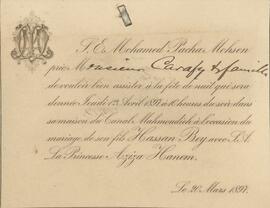 S. E. Mohamed Pacha Mohsen
prie Monsieur Cavafy & famille
de vouloir bien assister à la fête de nuit que sera
donnée Jeudi 1er Avril 1897 à heures du soir dans
sa maison du Canal Mahmoudieh à l'occasion du
mariage de son fils Hassan Bey avec S. A.
La Princesse Aziza Hanem.
Le 20 Mars 1897.